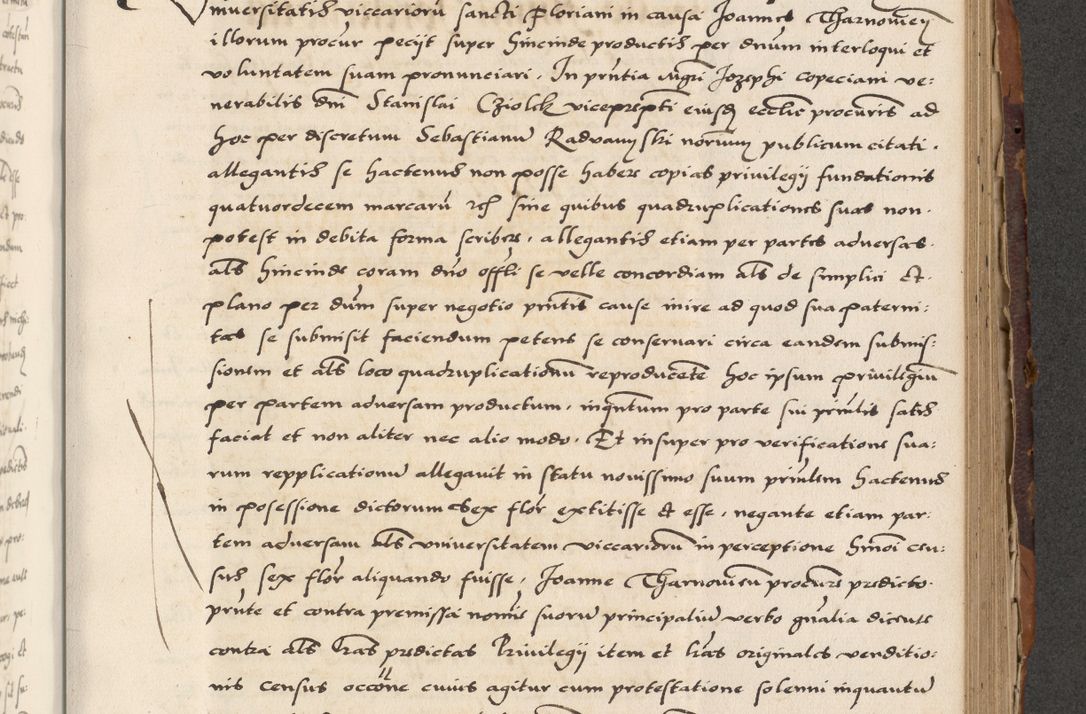 Vniversitatis viccariorũ sancti Floriani in causa Joannes Tharnowiey
illorum procur̃ pecijt super hincinde productis per dnũm interloqui et
voluntatem suam pronunciari. In prñtia mgri Jozephi copeciani ve:
nerabilis dni Stanislai Cziolek viceprepti eiusd eccliẽ procuris ad
hoc per discretum Sebastianũ Radvanski norium publicum citati.
allegantis se hactenus non posse habere copias privilegij fundationis
quatuordecem marcarũ rc͂ sine quibus quadruplicationes suas non
potest in debita forma scribere, allegantis etiam per partes adversas
als hincinde coram dno offli se velle concordiam als de simplici et
plano per dũm super negotio prñtis cause inire ad quod sua paterni:
tas se submisit faciendum petens se conservari circa eandem submis:
sionem et als loco quadruplicationũ reproducẽte hoc ipsum privilegiũ
per partem adversam productum, inqñtum pro parte sui prñlis satis
faciat et non aliter nec alio modo. Et insuper pro verificatione sua:
rum repplicationũ allegavit in statu novissimo suum prin̄lem hactenus
in posessione dictorum sex flor̃ extitisse et esse, negante etiam par:
tem adversam als vniversitatem viccariorũ in perceptione hm̃oi cen:
sus sex flor̃ aliquando fuisse, Joanne Tharnoviẽn procure predicto
prñte et contra premissa nomĩs suorũ principaliũ verbo gñalia dicente
contra als lr̃as predictas Privilegij item et lr̃as originales venditio:
nis census occõne cuius agitur cum protestatione solenni inquantũ